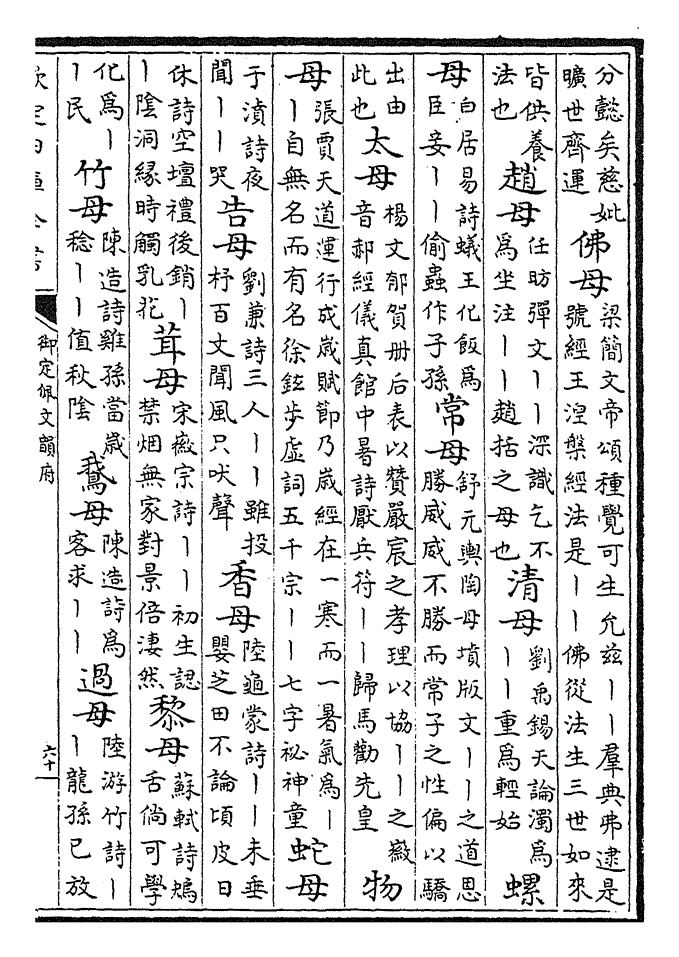 分懿矣慈妣曠世齊運佛母梁簡文帝頌種覺可生允茲丨丨羣典弗逮是號經王涅槃經法是丨丨佛從法生三世如來
皆供養法也趙母任昉彈文丨丨深識乞不為坐注丨丨趙括之母也清母劉禹錫天論濁為丨丨重為輕始螺
母白居易詩蟻王化飯為臣妾丨丨偷蟲作子孫常母舒元輿陶母墳版文丨丨之道恩勝威威不勝而常子之性偏以驕
出由此也太母楊文郁賀册后表以贊嚴宸之孝理以協丨丨之徽音郝經儀真館中暑詩厭兵符丨丨歸馬勸先皇物
母張賈天道運行成歲賦節乃歲經在一寒而一暑氣為丨丨自無名而有名徐鉉步虛詞五千宗丨丨七字祕神童蛇母
于濆詩夜聞丨丨哭告母劉兼詩三人丨丨雖投杼百文聞風只吠聲香母陸龜蒙詩丨丨未垂嬰芝田不論頃皮日
休詩空壇禮後銷丨丨陰洞緣時觸乳花茸母宋徽宗詩丨丨初生認禁烟無家對景倍淒然黎母蘇軾詩鴂舌倘可學
化為丨丨民竹母陳造詩雞孫當歲稔丨丨值秋陰鵞母陳造詩為客求丨丨過母陸游竹詩丨丨龍孫已放
欽定四庫全書
御定佩文韻府
六十